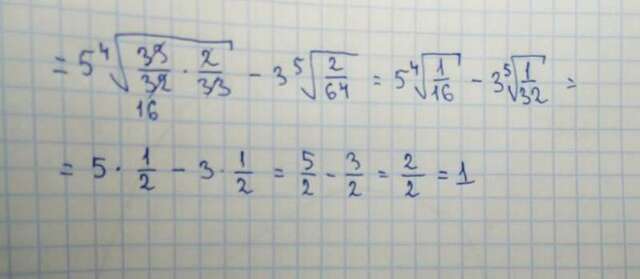 = 5 ⁴√(33/32 · 2/33) - 3 ⁵√(2/64) = 5 ⁴√(1/16) - 3 ⁵√(1/32) =
16
= 5 · 1/2 - 3 · 1/2 = 5/2 - 3/2 = 2/2 = 1